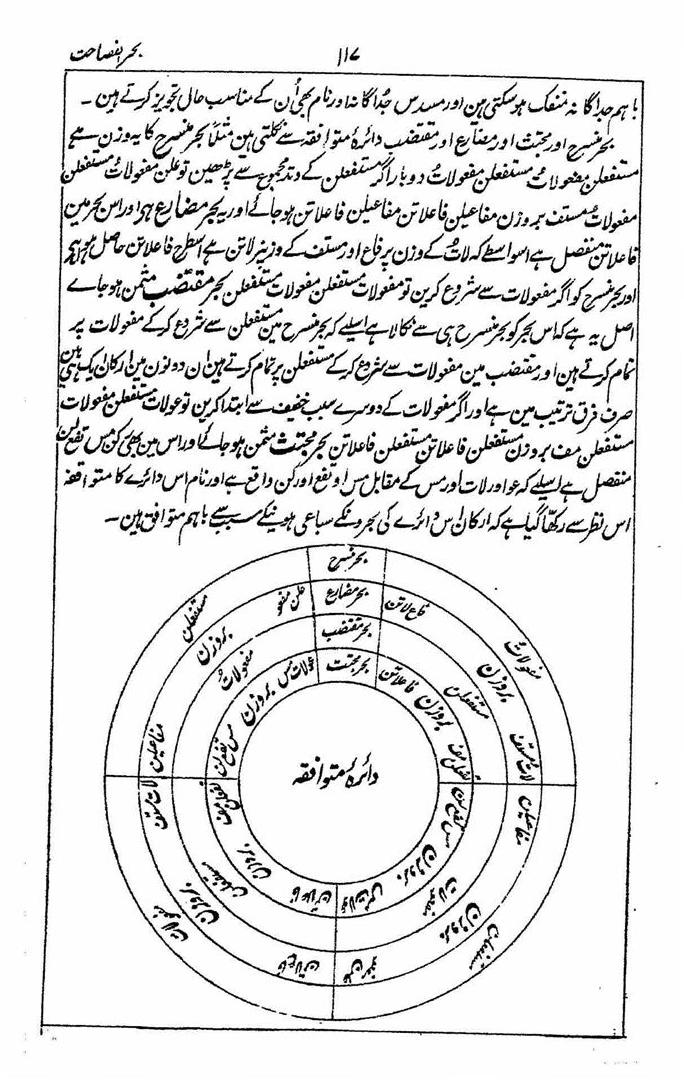 بحر الفصاحت
۱۱۷
باہم جداگانہ منفک ہوسکتی ہین اور مسدس جُداگانہ اور نام بھی اُن کے مناسب حال تجویز کرتے ہین۔
بحر منسرح اور مجتث اور مضارع اور مقتضب دائرۂ متوافقہ سے نکلتی ہین مثلاً بحر منسرح کا یہ وزن ہے
مستفعلن مفعولاتُ مستفعلن مفعولاتُ دوبار اگر مستفعلن کے وتد مجموع سے پڑھین تو علن مفعولاتُ مستفعلن
مفعولاتُ مستف بروزن مفاعیلن فاعلاتن مفاعیلن فاعلاتن ہوجائے اور یہ بحر مضارع ہی اور اس بحر مین
فاعلاتن منفصل ہے اسواسطے کہ لاتُ کے وزن پر فاع اور مستف کے وزن پر لاتن ہے اسطرح فاعلاتن حاصل ہوا ہی
اور بحر منسرح کو اگر مفعولات سے شروع کرین تو مفعولات مستفعلن مفعولات مستفعلن بحر مقتضب مثمن ہوجاے
اصل یہ ہے کہ اس بحر کو بحر منسرح ہی سے نکالا ہے اسلیے کہ بحر منسرح مین مستفعلن سے شروع کرکے مفعولات پر
تمام کرتے ہین اور مقتضب مین مفعولات سے شروع کرکے مستفعلن پر تمام کرتے ہین ان دونون مین ارکان ایک ہی ہین
صرف فرق ترتیب مین ہے اور اگر مفعولات کے دوسرے سبب خفیف سے ابتدا کرین تو عولات مستفعلن مفعولات
مستفعلن مف بروزن مستفعلن فاعلاتن مستفعلن فاعلاتن بحر مجتث مثمن ہوجائے اور اس مین بھی رکن مس تفع لن
منفصل ہے اسلیے کہ عو اور لات اور مس کے مقابل مس اور تفع اور لن واقع ہے اور نام اس دائرے کا متوافقہ
اس نظر سے رکھا گیا ہے کہ ارکان اس دائرے کی بحرونکے سباعی ہونیکے سبب سے باہم متوافق ہین۔
بحر منسرح
مستفعلن
مفعولات
مستفعلن
مفعولات
بحر مضارع
علن مفعو
بروزن
مفاعیلن
لات مستف
بروزن
فاع لاتن
علن مفعو
بروزن
مفاعیلن
لات مستف
بروزن
فاع لاتن
بحر مقتضب
مفعولاتُ
مستفعلن
مفعولات
مستفعلن
بحر مجتث
عولات مس
بروزن
مس تفع لن
تفعلن مف
بروزن
فاعلاتن
عولات مس
بروزن
مس تفع لن
تفعلن مف
بروزن
فاعلاتن
دائرۂ متوافقہ